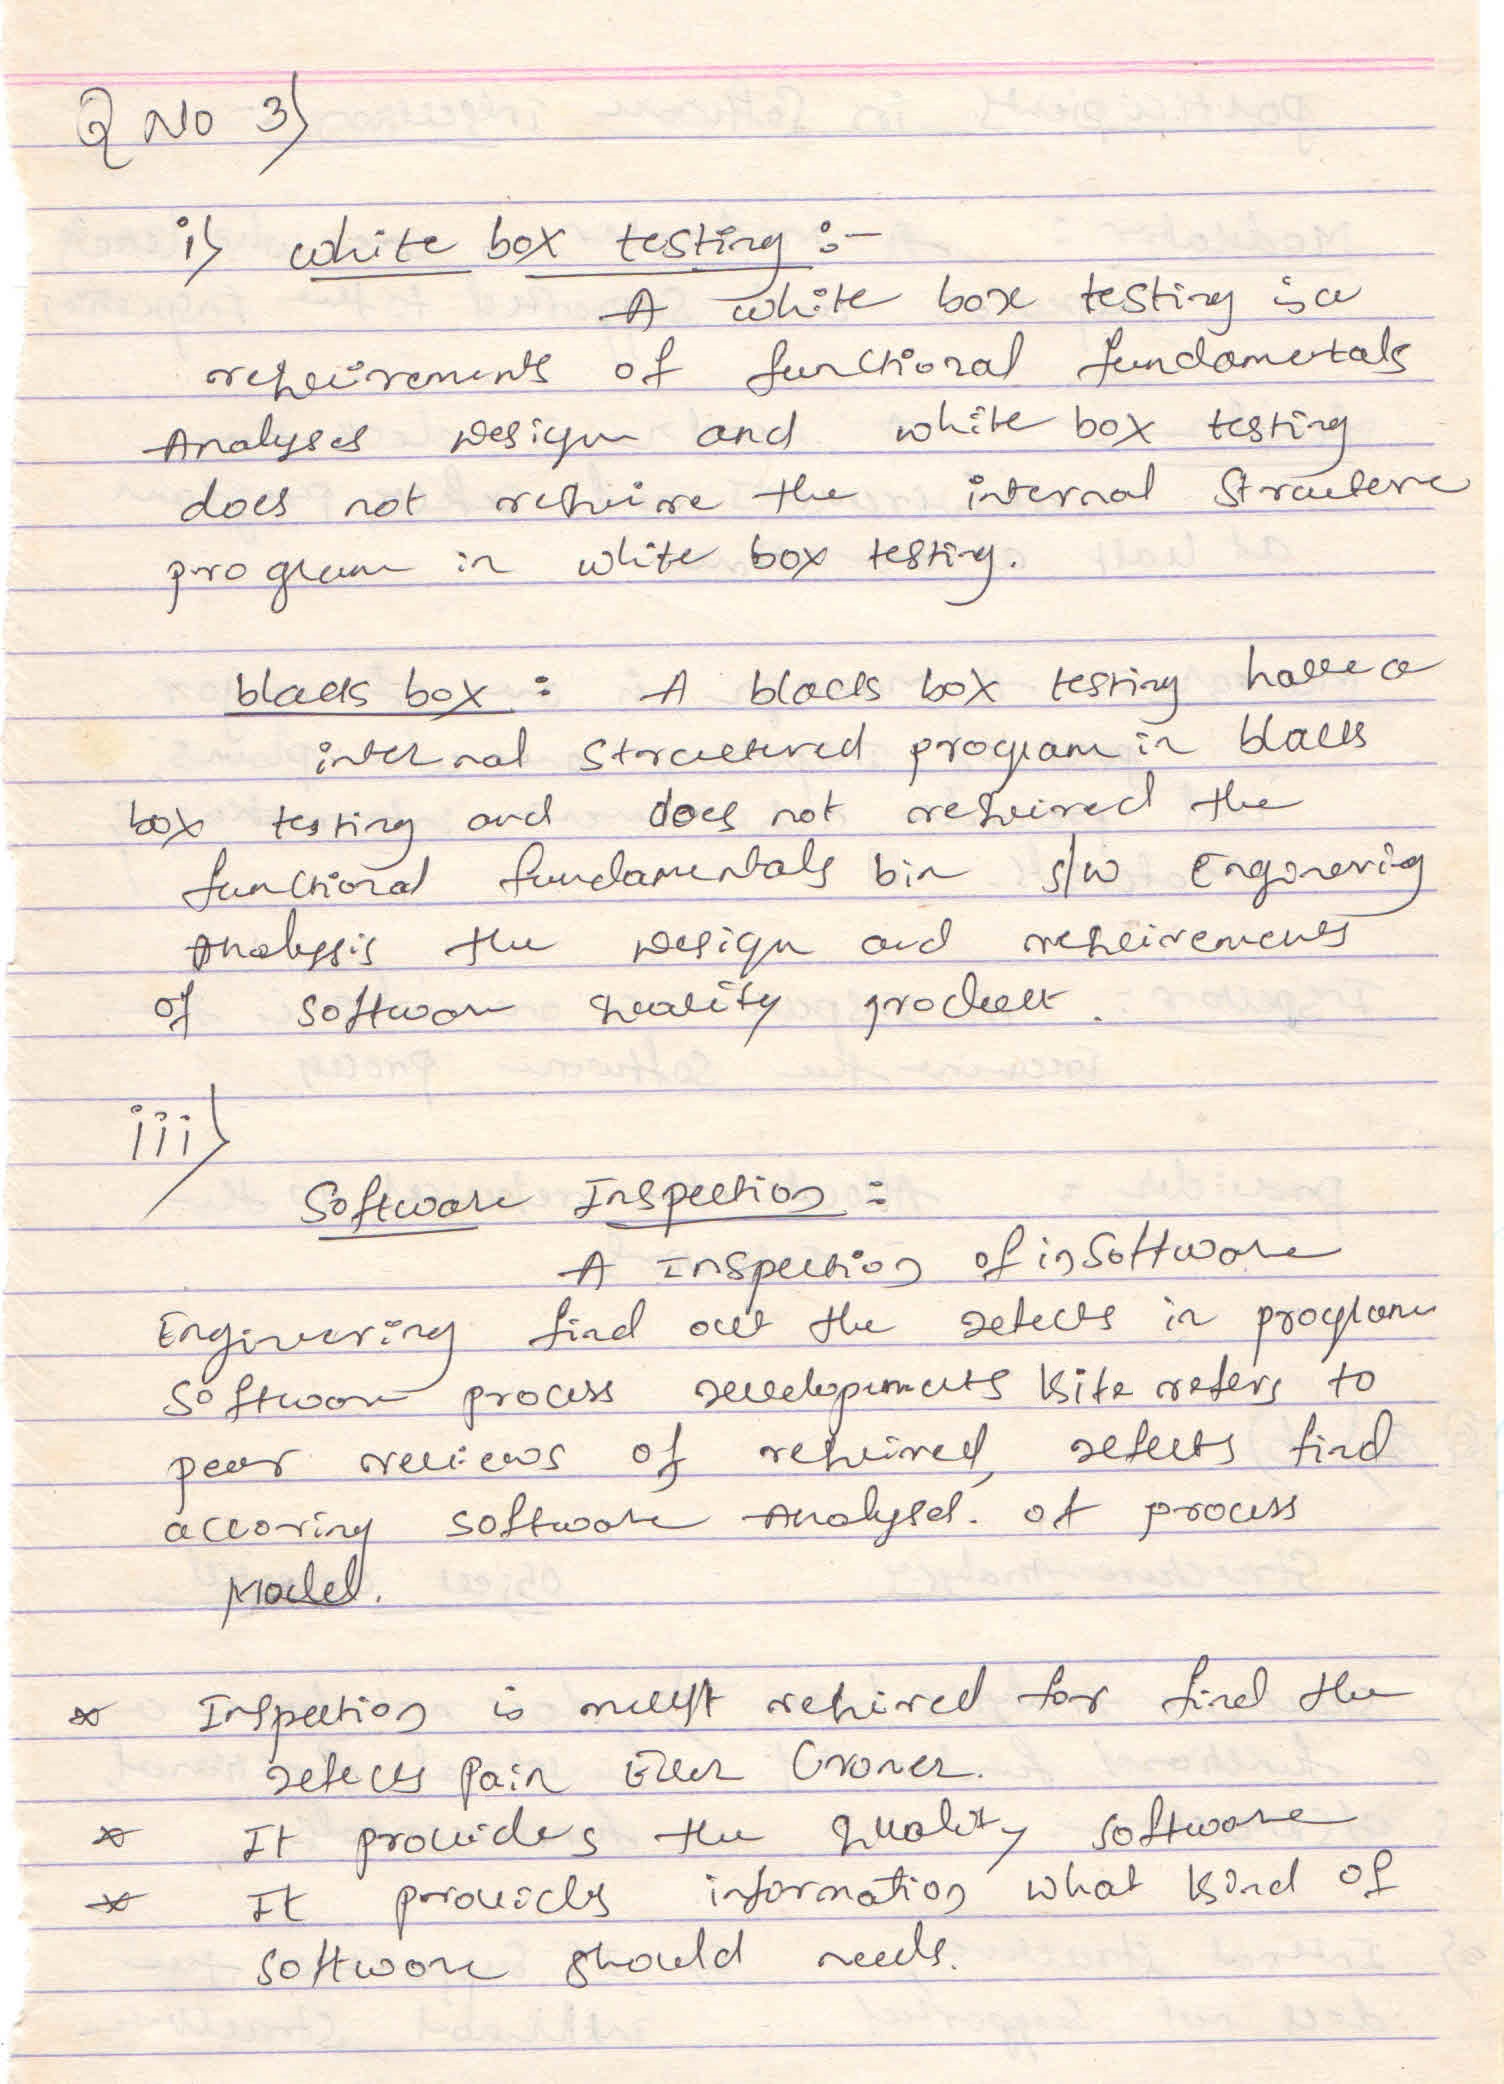 Q No 3)
i) white box testing :-
A white box testing is a
requirements of functional fundametals
Analyses Design and white box testing
does not require the internal Structure
program in white box testing.
black box : A black box testing have a
internal Structured program in black
box testing and does not required the
functional fundamentals bin s/w Enginerig
Analysis the Design and requirements
of Software quality product.
iii)
Software Inspection :
A Inspection of in Software
Enginering find out the defects in program
Software process developments kite refers to
peer reviews of required, defects find
accoring software Analysed. of process
Model.
* Inspection is must required for find the
defects pair
* It provides the quality software
* It provides information what kind of
software should needs.